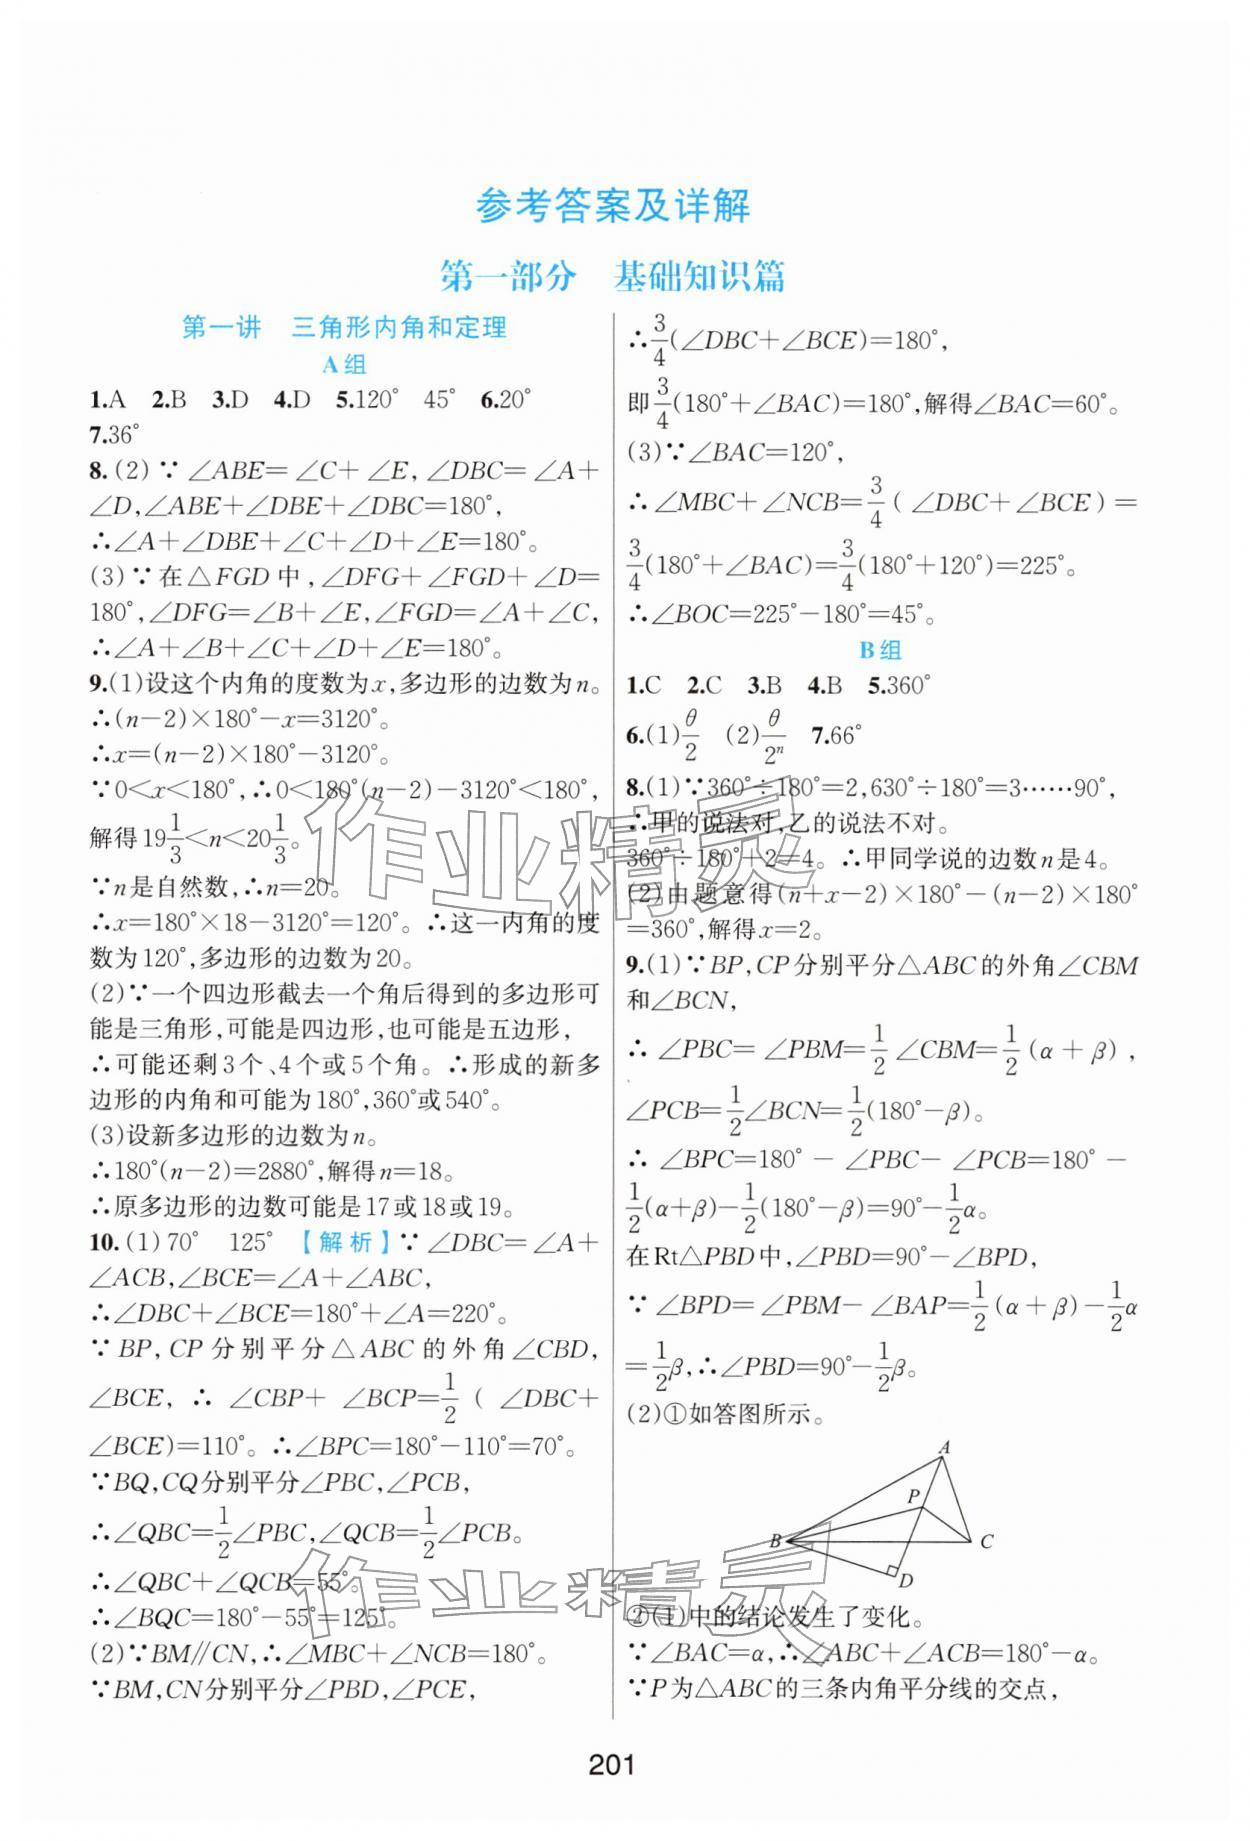 参考答案及详解
第一部分　基础知识篇
第一讲　三角形内角和定理
A 组
1.A　2.B　3.D　4.D　5.120°　45°　6.20°
7.36°
8.(2)∵∠ABE=∠C+∠E,∠DBC=∠A+
∠D,∠ABE+∠DBE+∠DBC=180°,
∴∠A+∠DBE+∠C+∠D+∠E=180°。
(3)∵在△FGD中,∠DFG+∠FGD+∠D=
180°,∠DFG=∠B+∠E,∠FGD=∠A+∠C,
∴∠A+∠B+∠C+∠D+∠E=180°。
9.(1)设这个内角的度数为x,多边形的边数为n。
∴(n-2)×180°-x=3120°。
∴x=(n-2)×180°-3120°。
∵0<x<180°,∴0<180°(n-2)-3120°<180°,
解得19 1/3<n<20 1/3。
∵n是自然数,∴n=20。
∴x=180°×18-3120°=120°。∴这一内角的度
数为120°,多边形的边数为20。
(2)∵一个四边形截去一个角后得到的多边形可
能是三角形,可能是四边形,也可能是五边形,
∴可能还剩3个、4个或5个角。∴形成的新多
边形的内角和可能为180°,360°或540°。
(3)设新多边形的边数为n。
∴180°(n-2)=2880°,解得n=18。
∴原多边形的边数可能是17或18或19。
10.(1)70°　125°　【解析】∵∠DBC=∠A+
∠ACB,∠BCE=∠A+∠ABC,
∴∠DBC+∠BCE=180°+∠A=220°。
∵BP,CP分别平分△ABC的外角∠CBD,
∠BCE,∴∠CBP+∠BCP=1/2(∠DBC+
∠BCE)=110°。∴∠BPC=180°-110°=70°。
∵BQ,CQ分别平分∠PBC,∠PCB,
∴∠QBC=1/2∠PBC,∠QCB=1/2∠PCB。
∴∠QBC+∠QCB=55°。
∴∠BQC=180°-55°=125°。
(2)∵BM∥CN,∴∠MBC+∠NCB=180°。
∵BM,CN分别平分∠PBD,∠PCE,
∴3/4(∠DBC+∠BCE)=180°,
即3/4(180°+∠BAC)=180°,解得∠BAC=60°。
(3)∵∠BAC=120°,
∴∠MBC+∠NCB=3/4(∠DBC+∠BCE)=
3/4(180°+∠BAC)=3/4(180°+120°)=225°。
∴∠BOC=225°-180°=45°。
B 组
1.C　2.C　3.B　4.B　5.360°
6.(1)θ/2　(2)θ/2ⁿ　7.66°
8.(1)∵360°÷180°=2,630°÷180°=3……90°,
∴甲的说法对,乙的说法不对。
360°÷180°+2=4。∴甲同学说的边数n是4。
(2)由题意得(n+x-2)×180°-(n-2)×180°
=360°,解得x=2。
9.(1)∵BP,CP分别平分△ABC的外角∠CBM
和∠BCN,
∴∠PBC=∠PBM=1/2∠CBM=1/2(α+β),
∠PCB=1/2∠BCN=1/2(180°-β)。
∴∠BPC=180°-∠PBC-∠PCB=180°-
1/2(α+β)-1/2(180°-β)=90°-1/2α。
在Rt△PBD中,∠PBD=90°-∠BPD,
∵∠BPD=∠PBM-∠BAP=1/2(α+β)-1/2α
=1/2β,∴∠PBD=90°-1/2β。
(2)①如答图所示。
A
P
B
C
D
②(1)中的结论发生了变化。
∵∠BAC=α,∴∠ABC+∠ACB=180°-α。
∵P为△ABC的三条内角平分线的交点,
201
作业精灵
作业精灵